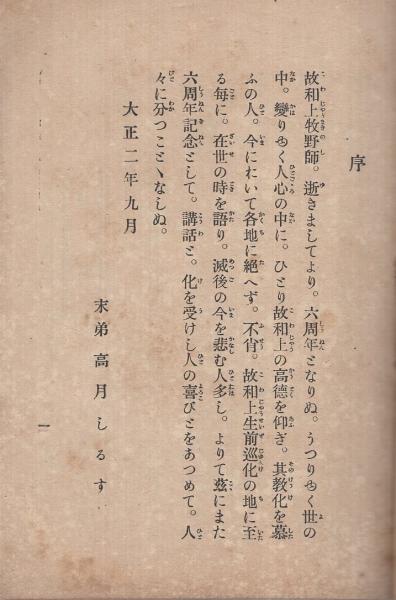 序
故和上牧野師。逝きましてより。六周年となりぬ。うつりゆく世の
中。變りゆく人心の中に。ひとり故和上の高德を仰ぎ。其敎化を慕
ふの人。今にれいて各地に絶へず。不肖。故和上生前巡化の地に至
る每に。在世の時を語り。滅後の今を悲む人多し。よりて玆にまた
六周年記念として。講話と。化を受けし人の喜びとをあつめて。人
々に分つことゝなしぬ。
大正二年九月
末弟高月しるす
一